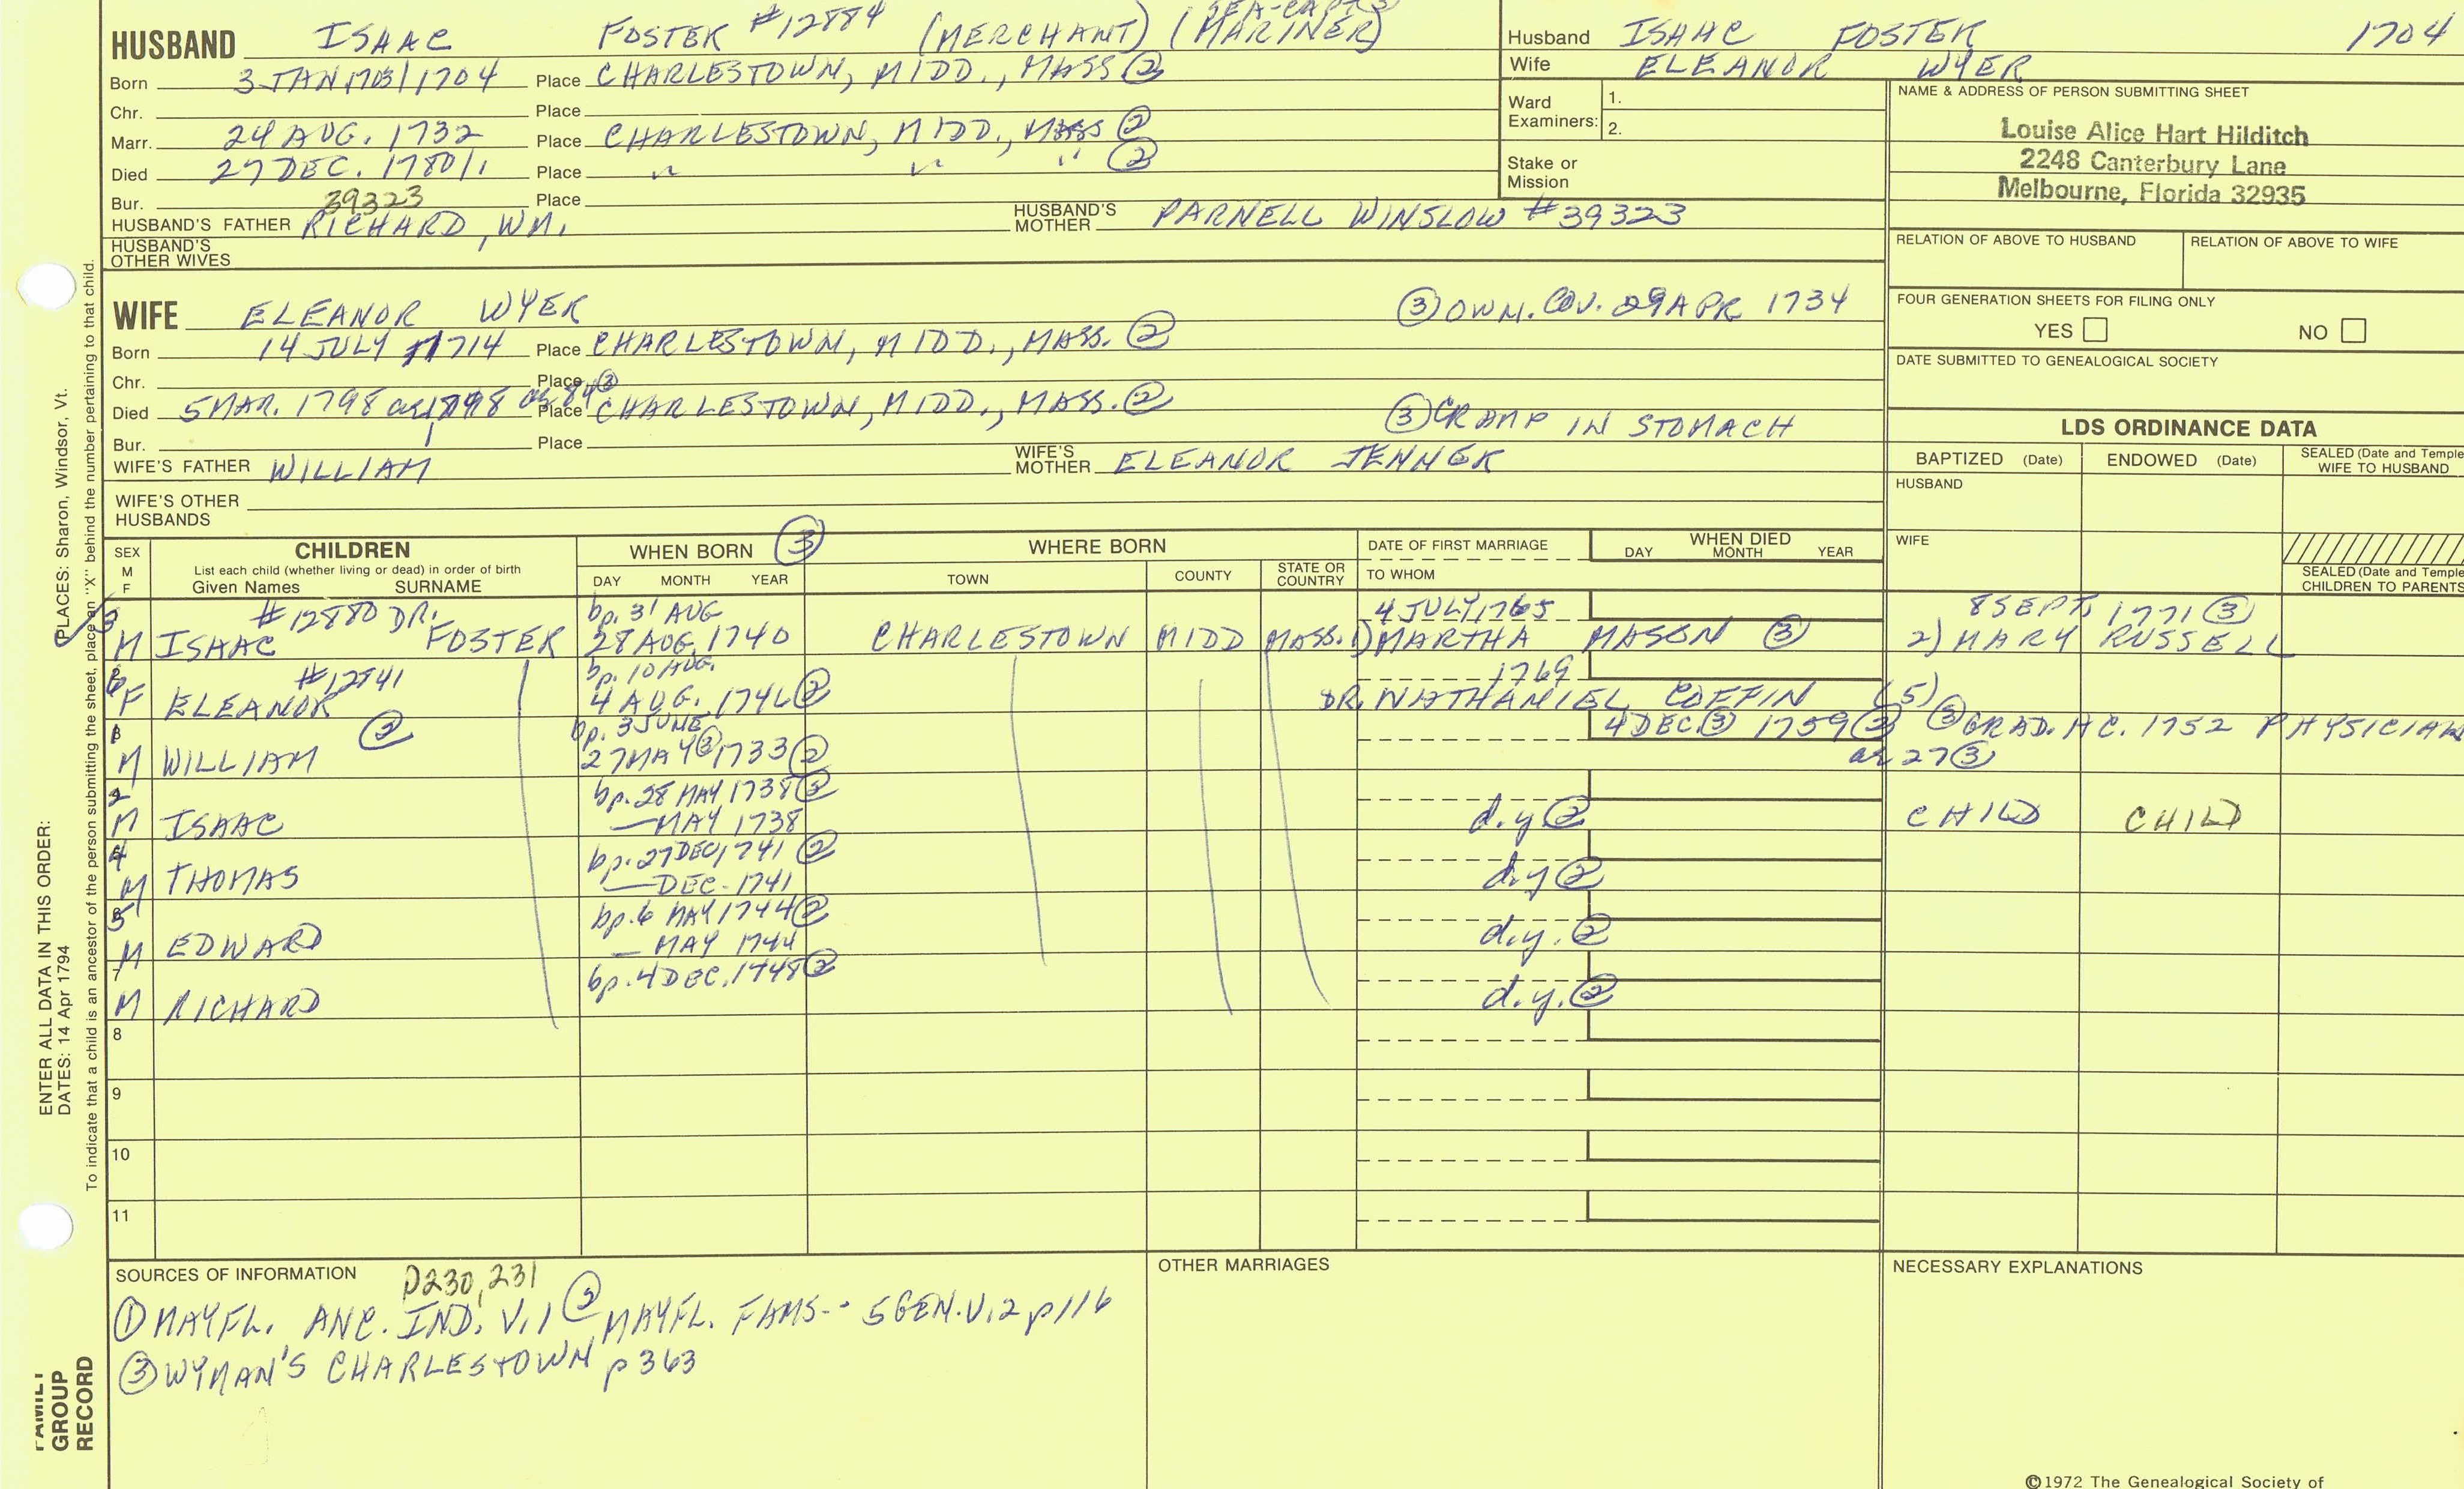 HUSBAND ISAAC FOSTER #12884 (MERCHANT) (MARINER) SEA-CAPT
Born 3 JAN 1703/1704 Place CHARLESTOWN, MIDD., MASS ②
Chr. Place
Marr. 24 AUG. 1732 Place CHARLESTOWN, MIDD., MASS ②
Died 27 DEC. 1780/1 Place " " " ②
Bur. Place
39323
HUSBAND'S FATHER RICHARD, WM. HUSBAND'S MOTHER PARNELL WINSLOW #39323
HUSBAND'S OTHER WIVES
Husband ISAAC FOSTER 1704
Wife ELEANOR WYER
Ward Examiners: 1.
2.
Stake or Mission
NAME & ADDRESS OF PERSON SUBMITTING SHEET
Louise Alice Hart Hilditch
2248 Canterbury Lane
Melbourne, Florida 32935
RELATION OF ABOVE TO HUSBAND RELATION OF ABOVE TO WIFE
FOUR GENERATION SHEETS FOR FILING ONLY
YES NO
DATE SUBMITTED TO GENEALOGICAL SOCIETY
WIFE ELEANOR WYER ③ OWN. COV. 29 APR 1734
Born 14 JULY 1714 Place CHARLESTOWN, MIDD., MASS. ②
Chr. Place
Died 5 MAR. 1798 ae 84 ③ Place CHARLESTOWN, MIDD., MASS. ② ③ CRAMP IN STOMACH
Bur. Place
WIFE'S FATHER WILLIAM WIFE'S MOTHER ELEANOR JENNER
WIFE'S OTHER HUSBANDS
LDS ORDINANCE DATA
BAPTIZED (Date) ENDOWED (Date) SEALED (Date and Temple) WIFE TO HUSBAND
HUSBAND
WIFE
SEALED (Date and Temple) CHILDREN TO PARENTS
SEX M F
CHILDREN
List each child (whether living or dead) in order of birth
Given Names SURNAME
WHEN BORN ③
DAY MONTH YEAR
WHERE BORN
TOWN COUNTY STATE OR COUNTRY
DATE OF FIRST MARRIAGE
TO WHOM
WHEN DIED
DAY MONTH YEAR
3 #12880 DR. bp. 31 AUG 4 JULY 1765 8 SEPT, 1771 ③
M ISAAC FOSTER 28 AUG, 1740 CHARLESTOWN MIDD MASS. 1) MARTHA MASON ③ 2) MARY RUSSELL
6 #12841 bp. 10 AUG. 1769
F ELEANOR 4 AUG. 1746 ② DR. NATHANIEL COFFIN (5)
1 ② bp. 3 JUNE 4 DEC. ③ 1759 ② ③ GRAD. HC. 1752 PHYSICIAN
M WILLIAM 27 MAY ③ 1733 ② ae 27 ③
2 bp. 28 MAY 1738 ②
M ISAAC — MAY 1738 d.y ② CHILD CHILD
4 bp. 27 DEC, 1741 ②
M THOMAS — DEC - 1741 d.y ②
5 bp. 6 MAY 1744 ②
M EDWARD — MAY 1744 d.y. ②
7 bp. 4 DEC. 1748 ②
M RICHARD d.y. ②
8
9
10
11
SOURCES OF INFORMATION p230, 231
① MAYFL. ANC. IND. V. 1 ② MAYFL. FAMS-- 5 GEN. V. 2 p 116
③ WYMAN'S CHARLESTOWN p 363
OTHER MARRIAGES
NECESSARY EXPLANATIONS
©1972 The Genealogical Society of
ENTER ALL DATA IN THIS ORDER:
DATES: 14 Apr 1794
PLACES: Sharon, Windsor, Vt.
To indicate that a child is an ancestor of the person submitting the sheet, place an "X" behind the number pertaining to that child.
FAMILY GROUP RECORD